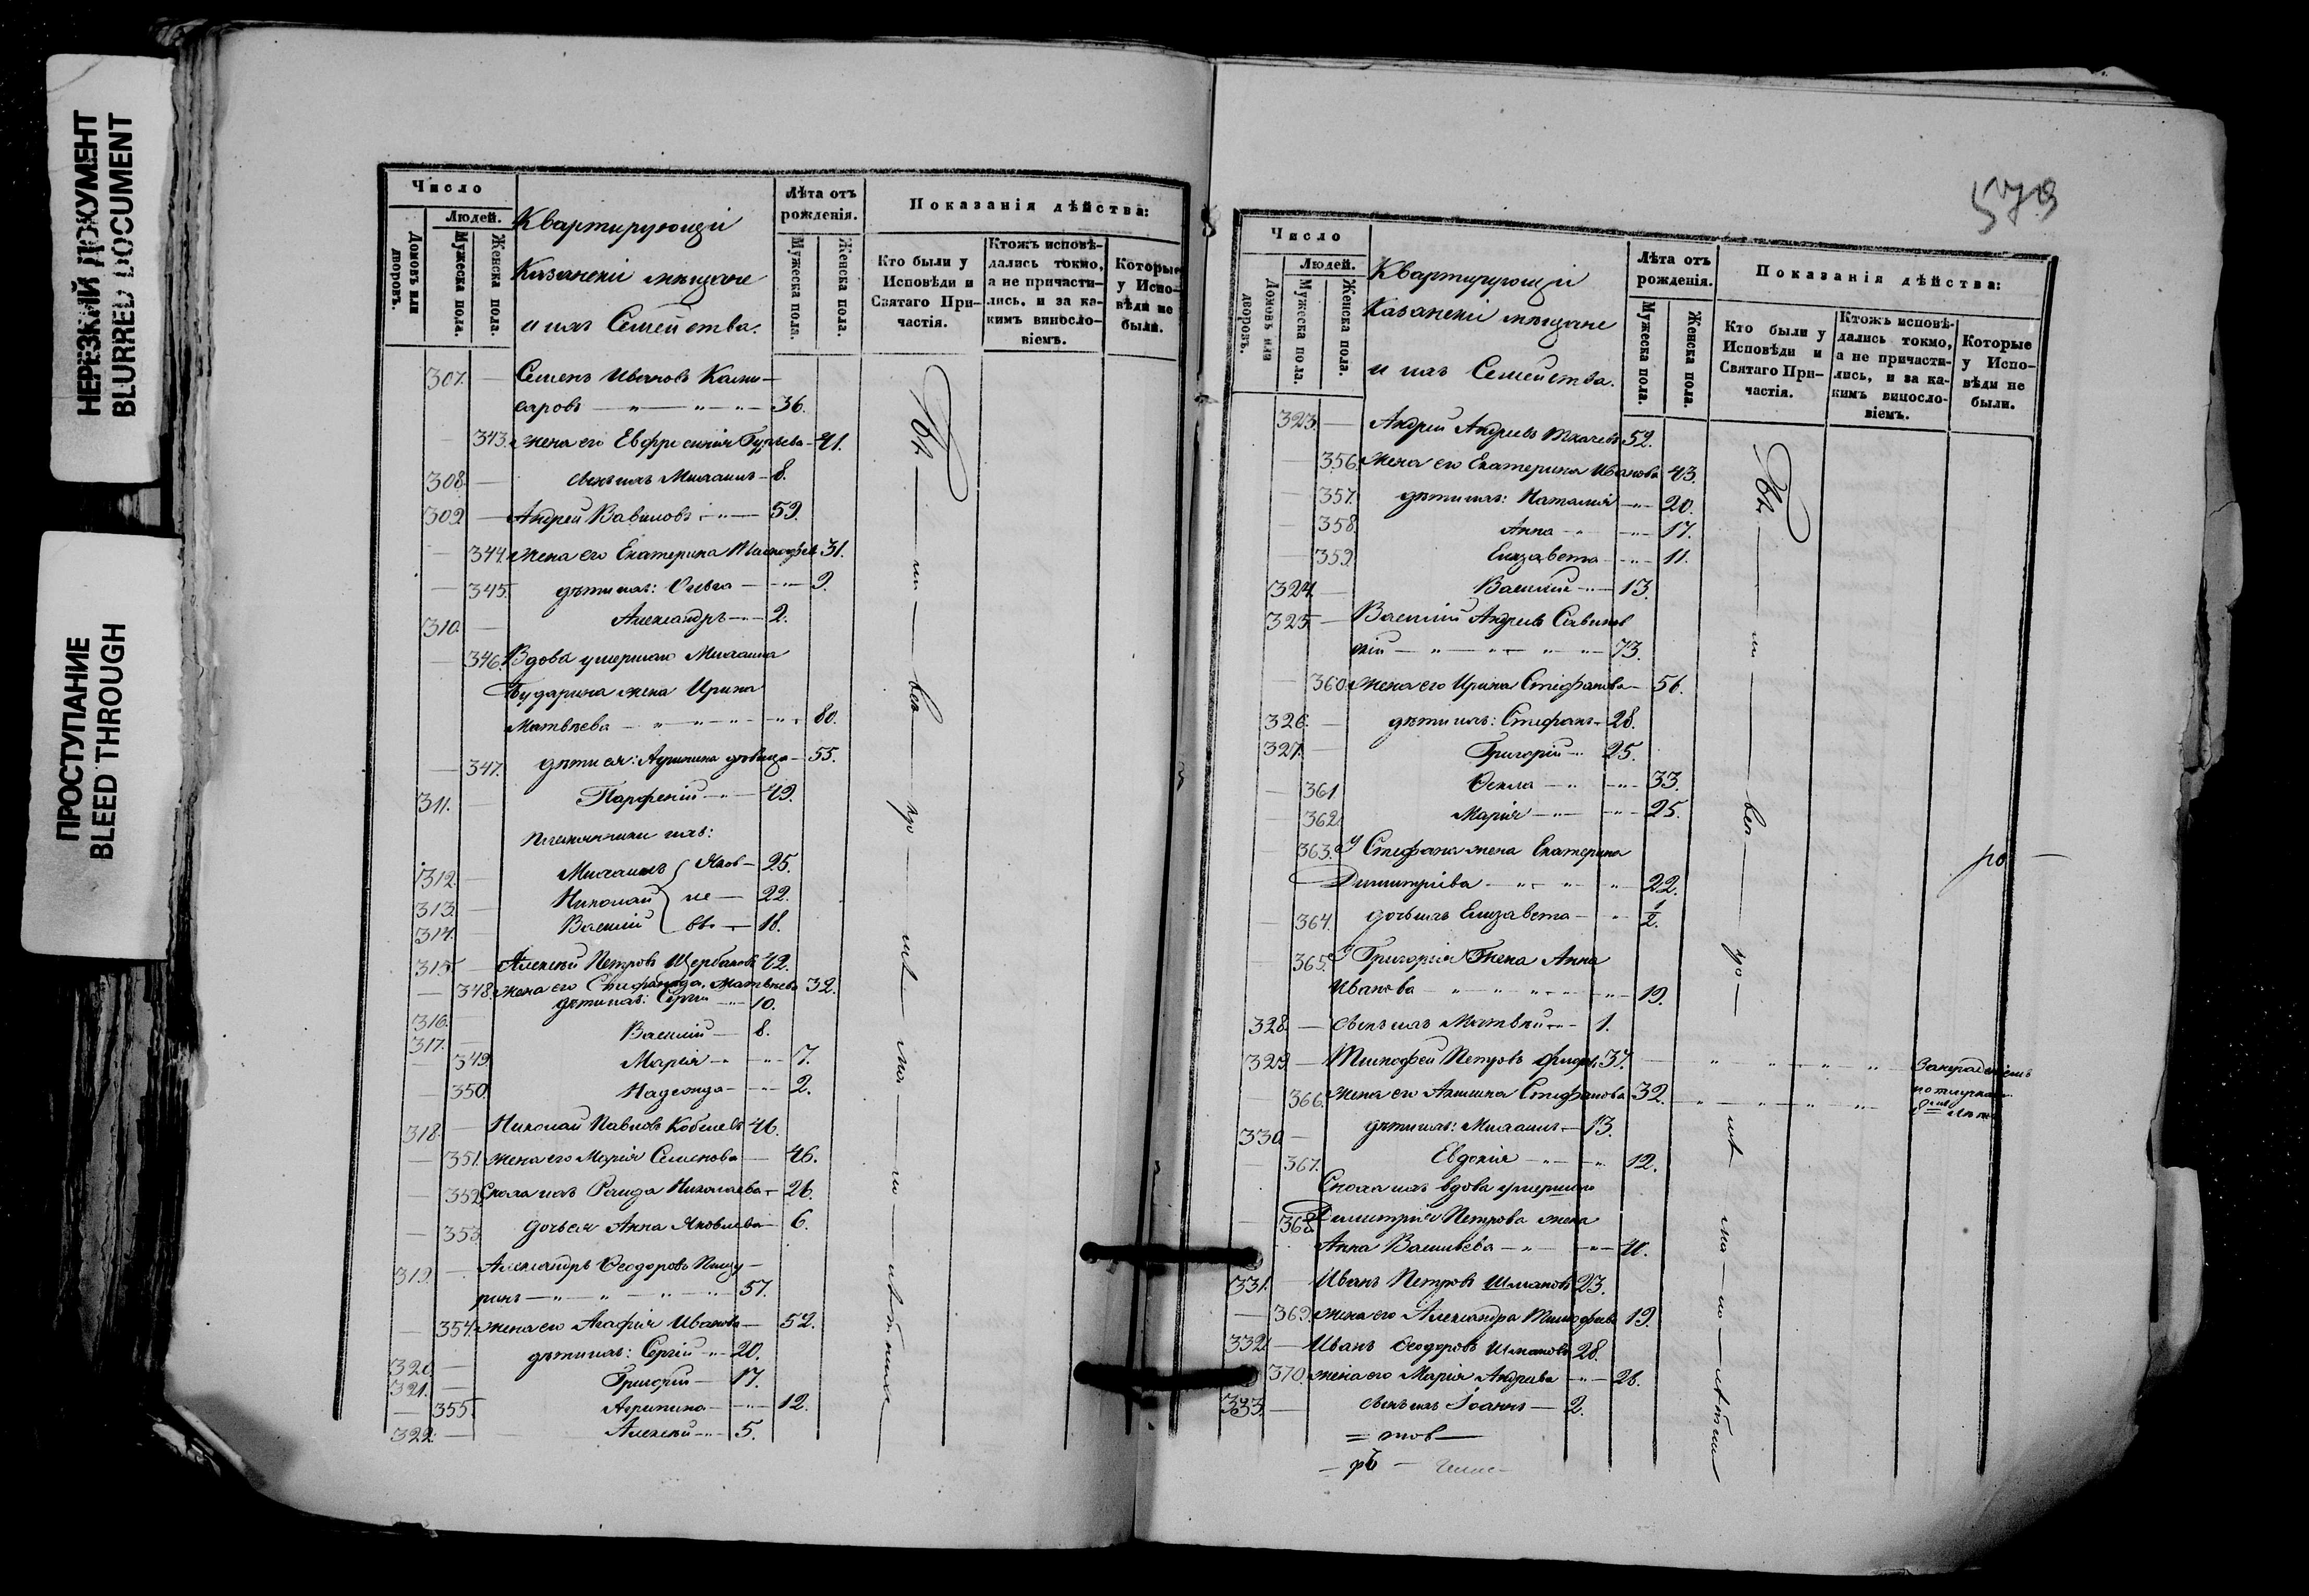 НЕРЕЗКИЙ ДОКУМЕНТ
BLURRED DOCUMENT
ПРОСТУПАНИЕ
BLEED THROUGH
Число
Людей.
Домовъ или дворовъ.
Мужеска пола.
Женска пола.
Квартирующіи
Казанскіи мѣщане
и ихъ Семейства.
Лѣта отъ рожденія.
Мужеска пола.
Женска пола.
Показанія дѣйства:
Кто были у Исповѣди и Святаго Причастія.
Ктожъ исповѣдались токмо, а не причастились, и за какимъ винословіемъ.
Которые у Исповѣди не были.
307. Семенъ Ивановъ
саровъ 36.
343. жена его Евфросинія 41.
308. сынъ ихъ Михаилъ 8.
309 Андрей Вавиловъ 59.
344. жена его Екатерина 31.
345. дѣти ихъ: Ольга 9.
310. Александръ 2.
346. Вдова умершаго Михаила
Бударина жена Ирина
Матвѣева 80.
347. дѣти ея: Агрипина дѣвица 55.
311. Парфеній 49.
племянники ихъ:
312. Михаилъ Яков 25.
313. Николай ле 22.
314. Василій вы 18.
315. Алексѣй Петровъ Щербаковъ 42.
348. жена его Матвѣева 32.
316. дѣти ихъ: Сергій 10.
317. Василій 8.
349. Марія 7.
350. Надежда 2.
318. Николай Павловъ Кобелевъ 46.
351. жена его Марія Семенова 46.
352. Сноха ихъ Николаева 26.
353. дочь ея Анна Яковлева 6.
319. Александръ Ѳеодоровъ
ринъ 57.
354. жена его Агафія Иванова 52.
320. дѣти ихъ: Сергій 20.
321. Григорій 17.
355. Агрипина 12.
322. Алексѣй 5.
Число
Людей.
Домовъ или дворовъ.
Мужеска пола.
Женска пола.
Квартирующіи
Казанскіи мѣщане
и ихъ Семейства.
Лѣта отъ рожденія.
Мужеска пола.
Женска пола.
Показанія дѣйства:
Кто были у Исповѣди и Святаго Причастія.
Ктожъ исповѣдались токмо, а не причастились, и за какимъ винословіемъ.
Которые у Исповѣди не были.
323. Андрей Андреевъ Ткачевъ 52.
356. жена его Екатерина Иванова 43.
357. дѣти ихъ: Наталія 20.
358. Анна 17.
359 Елизавета 11.
324. Василій 13.
325 Василій Андреевъ Савинов
скій 73.
360. жена его Ирина Стефанова 56.
326. дѣти ихъ: Стефанъ 28.
327. Григорій 25.
361. Ѳекла 33.
362. Марія 25.
363. у Стефана жена Екатерина
Димитріева 22.
364. дочь ихъ Елизавета 1/2.
365. у Григорія жена Анна
Иванова 19.
328. сынъ ихъ Матвѣй 1.
329. Тимофей Петровъ 37.
366. жена его Акилина Стефанова 32.
330. дѣти ихъ: Михаилъ 13.
367. Евдокія 12.
Сноха ихъ вдова умершаго
368. Димитрія Петрова жена
Анна Васильева 40.
331. Иванъ Петровъ Шмаковъ 23.
369. жена его Александра Тимофеева 19.
332. Иванъ Ѳеодоровъ Шмаковъ 28.
370. жена его Марія Андреева 26.
333. сынъ ихъ Іоаннъ 2.